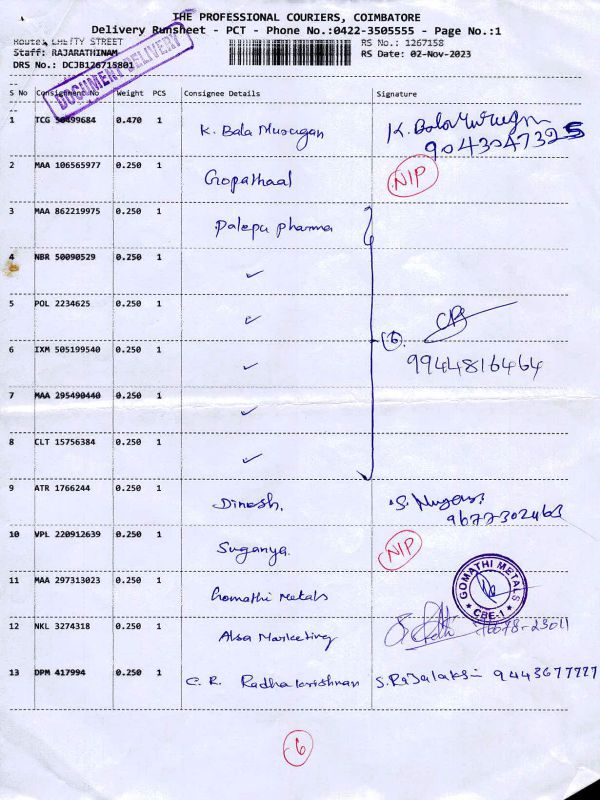 THE PROFESSIONAL COURIERS, COIMBATORE
Delivery Runsheet - PCT - Phone No.:0422-3505555 - Page No.:1
STREET
Staff: RAJARATHINAM
DRS No.: DCJB126715801
RS No.: 1267158
RS Date: 02-Nov-2023
DOCUMENT DELIVERY
S No Consignment No Weight PCS Consignee Details Signature
1 TCG 50499684 0.470 1 K. Bala Murugan K. BalaMurugan
9043047325
2 MAA 106565977 0.250 1 Gopathaal NIP
3 MAA 862219975 0.250 1 Palepu pharma
4 NBR 50090529 0.250 1 ✓
5 POL 2234625 0.250 1 ✓
6 IXM 505199540 0.250 1 ✓ (6) 9944816464
7 MAA 295490440 0.250 1 ✓
8 CLT 15756384 0.250 1 ✓
9 ATR 1766244 0.250 1 Dinesh.
9677302463
10 VPL 220912639 0.250 1 Suganya. NIP
11 MAA 297313023 0.250 1 Gomathi Metals GOMATHI METALS
CBE-1
12 NKL 3274318 0.250 1 Alsa Marketing
13 DPM 417994 0.250 1 C. R. Radhakrishnan 9443677727
6